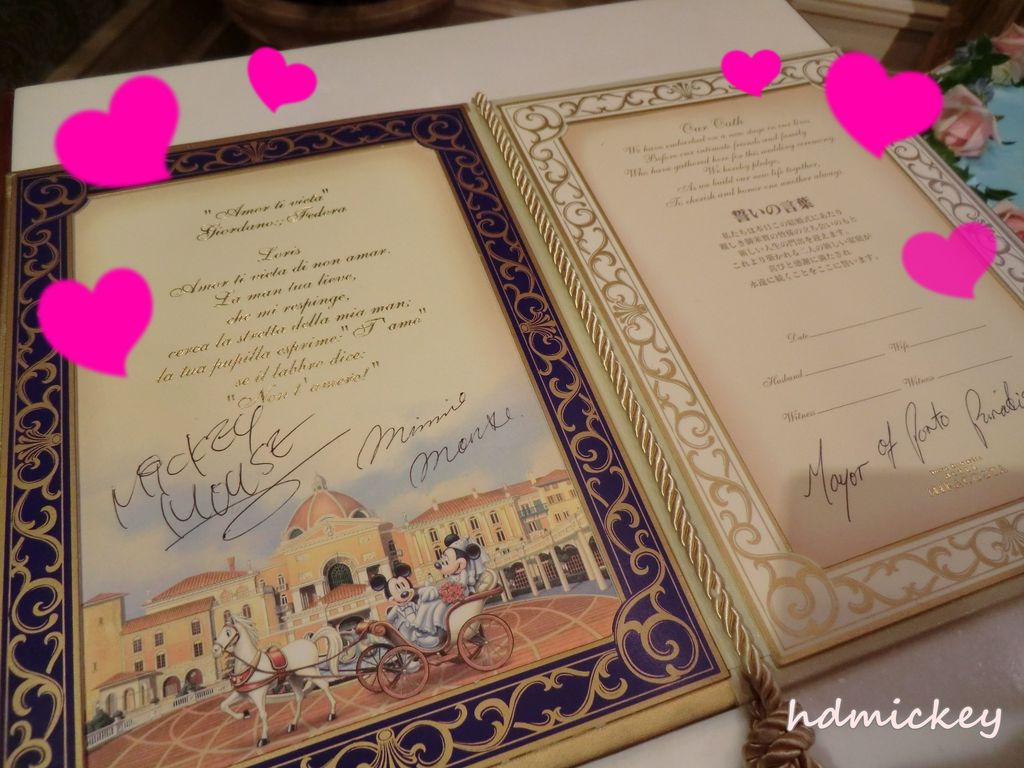 "Amor ti vieta"
Giordano:;Fedora
Loris
Amor ti vieta di non amar.
La man tua lieve,
che mi respinge,
cerca la stretta della mia man:
la tua pupilla esprime:"T'amo"
se il labbro dice:
"Non t'amero!"
MICKEY
MOUSE
Minnie
Mouse.
Our Oath
We have embarked on a new stage in our lives
Before our intimate friends and family
Who have gathered here for this wedding ceremony.
We hereby pledge,
As we build our new life together,
To cherish and honor one another always.
誓いの言葉
私たちは本日この結婚式にあたり
親しき御来賓の皆様の立ち会いのもと
新しい人生の門出を迎えます。
これより築かれる二人の新しい家庭が
喜びと感謝に満たされ
永遠に続くことをここに誓います。
Date
Husband Wife
Witness Witness
Mayor of Porto Paradiso
hdmickey